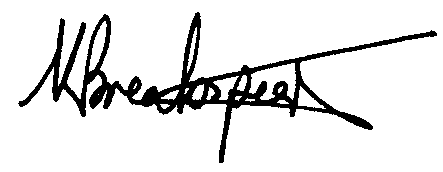 K Breakspear